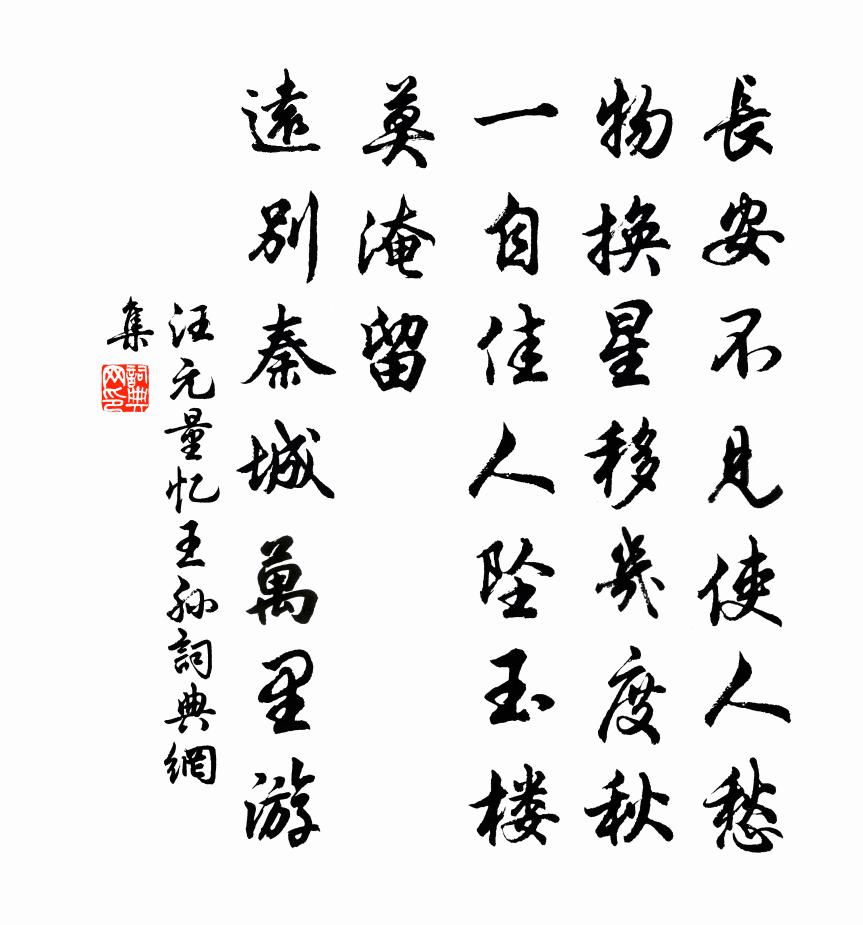 長安不見使人愁
物換星移幾度秋
一自佳人坠玉楼
莫淹留
遠別秦城萬里游
汪元量忆王孙詞典網
集
詞典网印